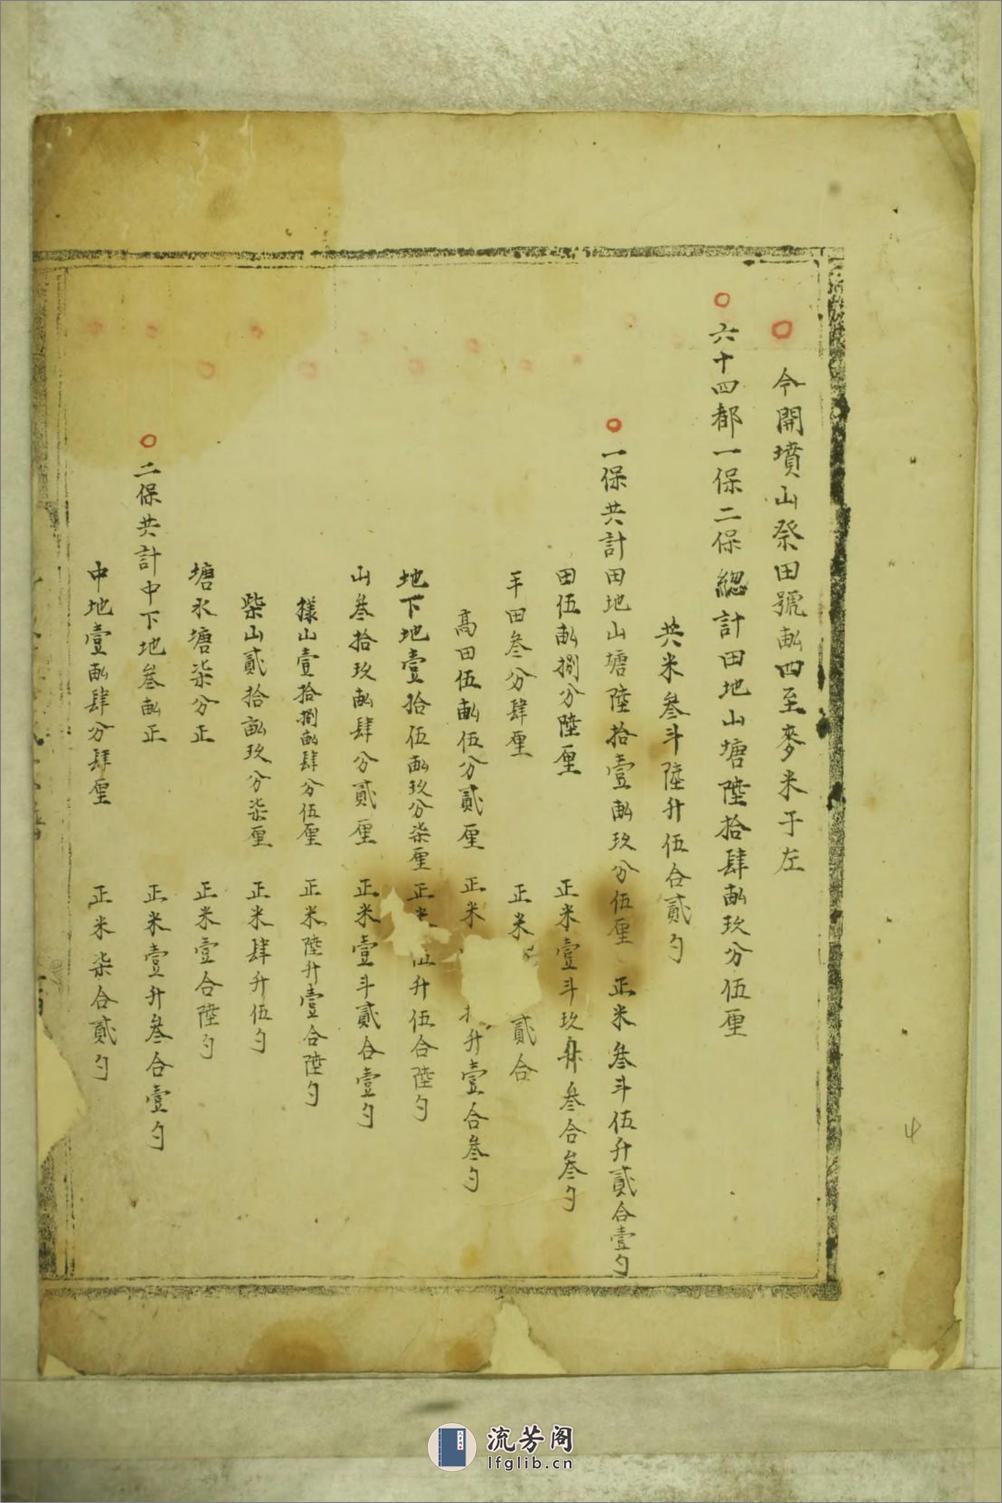 今開墳山祭田號畝四至麥米于左
六十四都一保二保總計田地山塘陸拾肆畝玖分伍厘
共米叄斗陸升伍合貳勺
一保共計田地山塘陸拾壹畝玖分伍厘 正米叄斗伍升貳合壹勺
田伍畝捌分陸厘 正米壹斗玖升叄合叄勺
平田叄分肆厘 正米 貳合
高田伍畝伍分貳厘 正米 升壹合叄勺
地下地壹拾伍畝玖分柒厘 正米伍升伍合陸勺
山叄拾玖畝肆分貳厘 正米壹斗貳合壹勺
樣山壹拾捌畝肆分伍厘 正米陸升壹合陸勺
柴山貳拾畝玖分柒厘 正米肆升伍勺
塘水塘柒分正 正米壹合陸勺
二保共計中下地叄畝正 正米壹升叄合壹勺
中地壹畝肆分肆厘 正米柒合貳勺
流芳阁
lfglib.cn